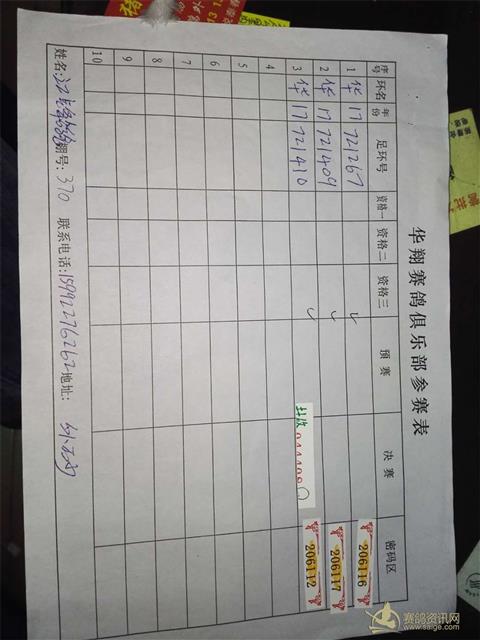 华翔赛鸽俱乐部参赛表
序号 环名 年份 足环号 资格一 资格二 资格三 预赛 决赛 密码区
1 华 17 721267 ✓ 206116
2 华 17 721409 ✓ 206117
3 华 17 721410 ✓ 206112
4
5
6
7
8
9
10
姓名: 棚号: 370 联系电话: 15992276262 地址:
赛鸽资讯网
www.saige.com